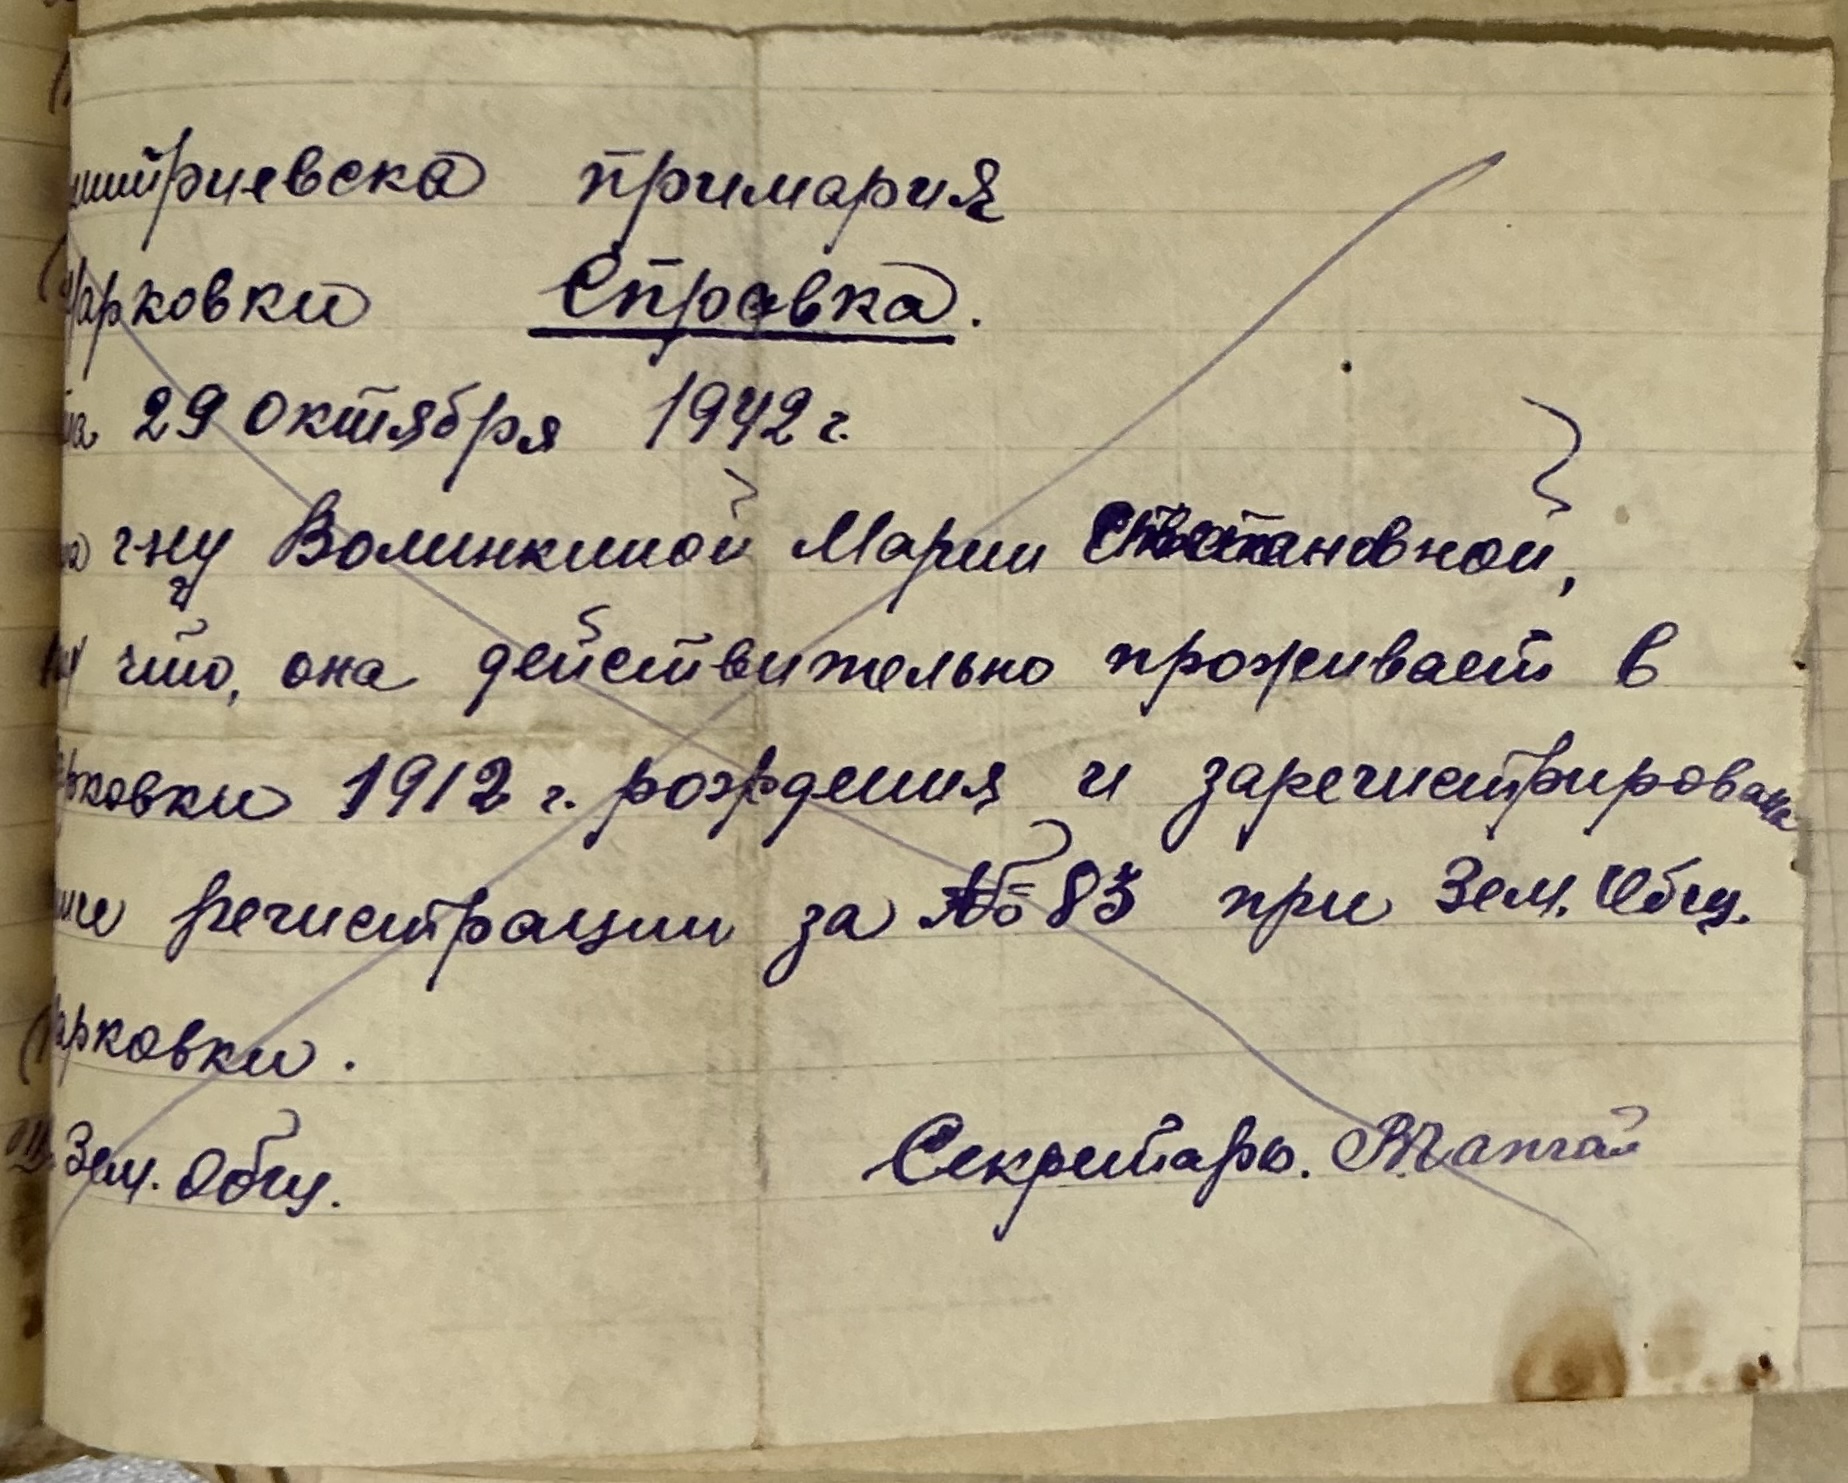 митриевска примария
Марковки Справка.
та 29 октября 1942 г.
на г-ну Волинкиной Марии Степановной,
что, она действительно проживает в
арковки 1912 г. рождения и зарегистрирована
ниге регистрации за № 83 при Зем. Общ.
Марковки.
Зем. Общ. Секретарь.